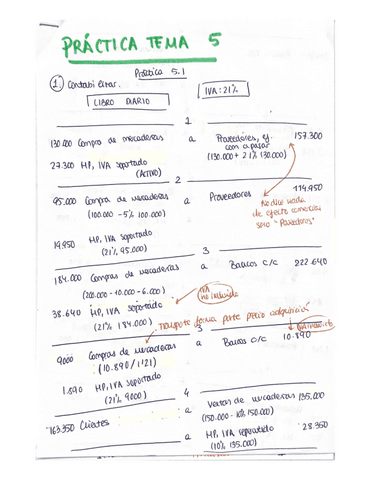 PRÁCTICA TEMA 5
Práctica 5.1
1. Contabilizar.
LIBRO DIARIO
IVA: 21%
1
130.000 Compra de mercaderías a Proveedores, ef. com a pagar 157.300
(130.000 + 21% 130.000)
27.300 HP, IVA soportado
(ACTIVO)
2
95.000 Compra de mercaderías a Proveedores 114.950
(100.000 - 5% 100.000)
No dice nada
de efecto comercial
solo "Proveedores"
19.950 HP, IVA soportado
(21% 95.000)
3
184.000 Compras de mercaderías a Bancos c/c 222.640
(200.000 - 10.000 - 6.000)
IVA
no incluido
38.640 HP, IVA soportado
(21% 184.000)
Transporte forma parte precio adquisición
3
IVA incluido
9000 Compras de mercaderías a Bancos c/c 10.890
(10.890 / 1'21)
1.890 HP, IVA soportado
(21% 9000)
4
Ventas de mercaderías 135.000
(150.000 - 10% 150.000)
163.350 Clientes a HP, IVA repercutido 28.350
(10% 135.000)